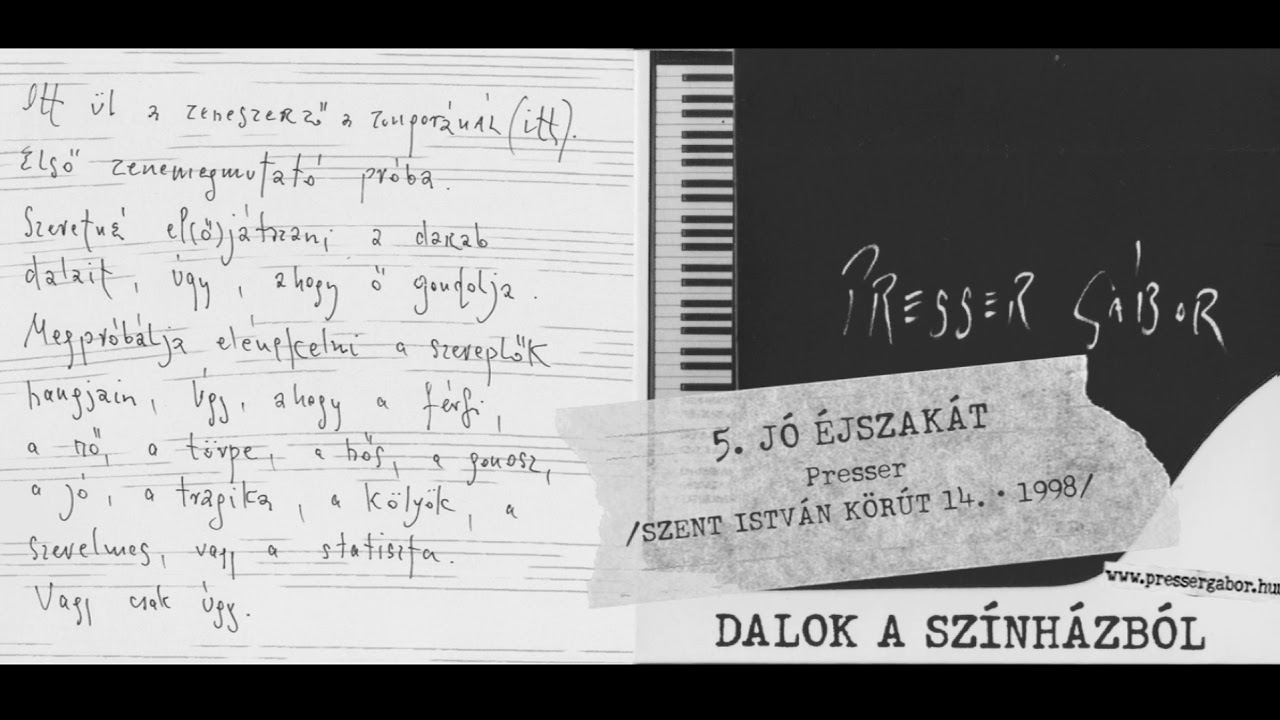 Itt ül a zeneszerző a zongoránál (itt).
Első zenemegmutató próba.
Szeretné el(ő)játszani a darab
dalait, úgy, ahogy ő gondolja.
Megpróbálja elénekelni a szereplők
hangjain, úgy, ahogy a férfi,
a nő, a törpe, a hős, a gonosz,
a jó, a tragika, a kölyök, a
szerelmes, vagy a statiszta.
Vagy csak úgy.
PRESSER GÁBOR
5. JÓ ÉJSZAKÁT
Presser
/SZENT ISTVÁN KÖRÚT 14. • 1998/
www.pressergabor.hu
DALOK A SZÍNHÁZBÓL